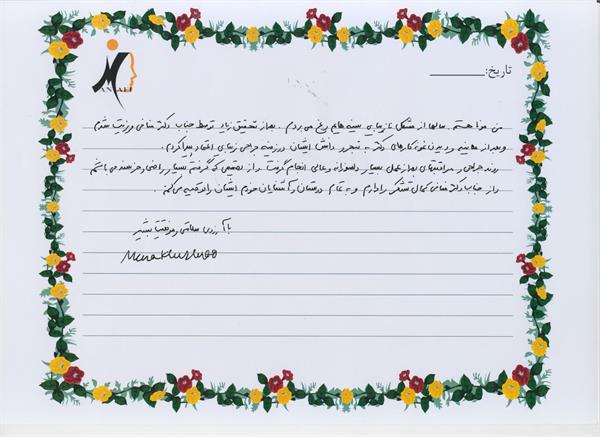 MANAFI
تاریخ:
من مونا هستم. سالها از مشکل نازیبایی سینه هایم رنج می بردم. بعد از تحقیق زیاد توسط جناب دکتر منافی ویزیت شدم
و بعد از معاینه و دیدن نمونه کارهای دکتر به تبحر و دانش ایشان در زمینه جراحی زیبایی اعتماد پیدا کردم.
روند جراحی و مراقبتهای بعد از عمل بسیار دلسوزانه و عالی انجام گرفت و از تصمیمی که گرفتم بسیار راضی و خرسند می باشم
و از جناب دکتر منافی کمال تشکر را دارم و به تمام دوستان و آشنایان خودم ایشان را توصیه می کنم.
با آرزوی سلامتی و موفقیت بیشتر